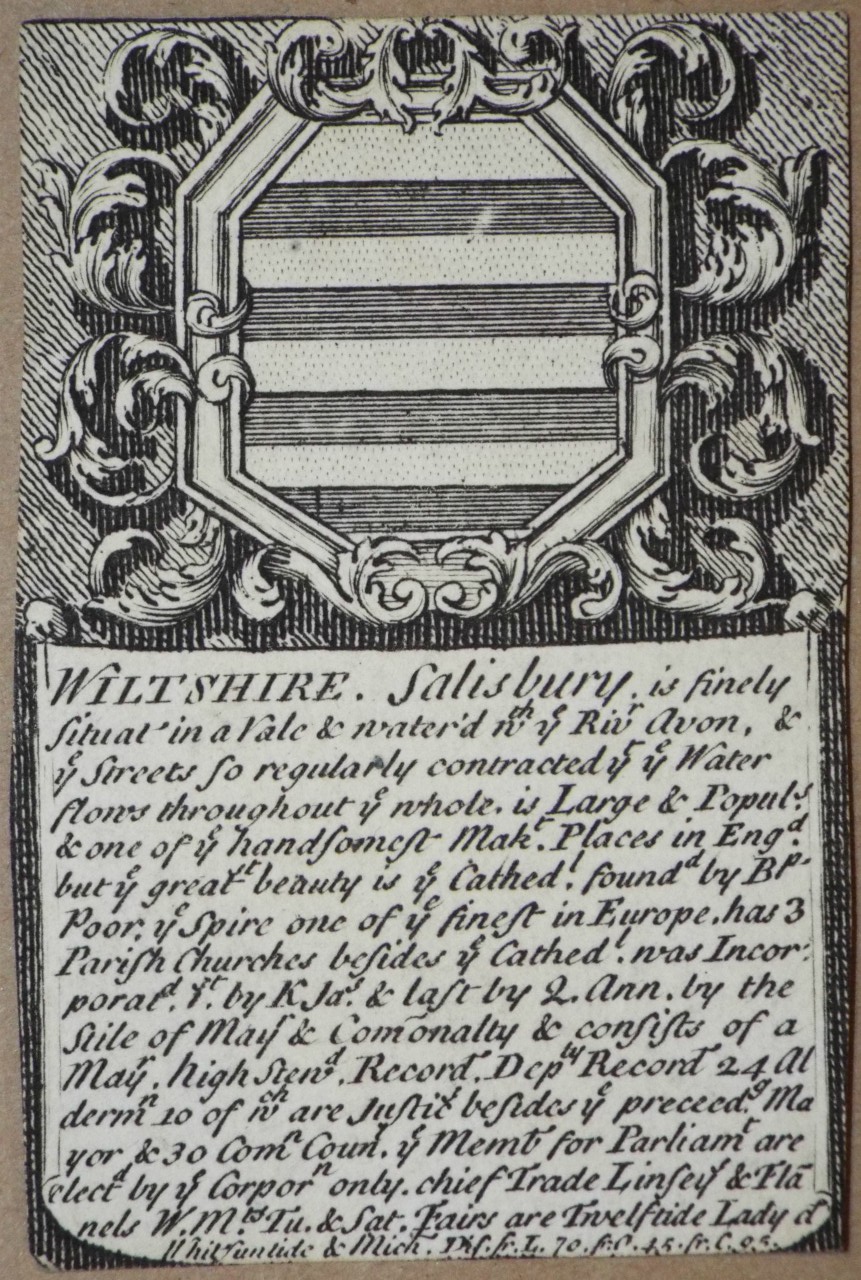 WILTSHIRE. Salisbury, is finely
situat in a Vale & water'd wch ye Rivr Avon, &
ye Streets so regularly contracted yt ye Water
flows throughout ye whole. is Large & Populs
& one of ye handsomest Makt. Places in Engd.
but ye greatst beauty is ye Cathedl. foundd by Bp.
Poor, ye Spire one of ye finest in Europe. has 3
Parish Churches besides ye Cathedl. was Incor:
poratd. 1st. by K Jas. & last by Q. Ann. by the
Stile of Mayr & Com̄onalty & consists of a
Mayr. high Stewd. Recordr. Depty Recordr 24 Al
dermn 10 of wch are Justics besides ye preceedg. Ma
yor & 30 Comn Coun. ye Membrs for Parliamt are
electd by ye Corporn only. chief Trade Linseys & Fla
nels W. Mkts Tu. & Sat. Fairs are Twelftide Lady d
Whitsuntide & Mich. Dis. fr. L. 70. fr. O. 45. fr. C. 95.